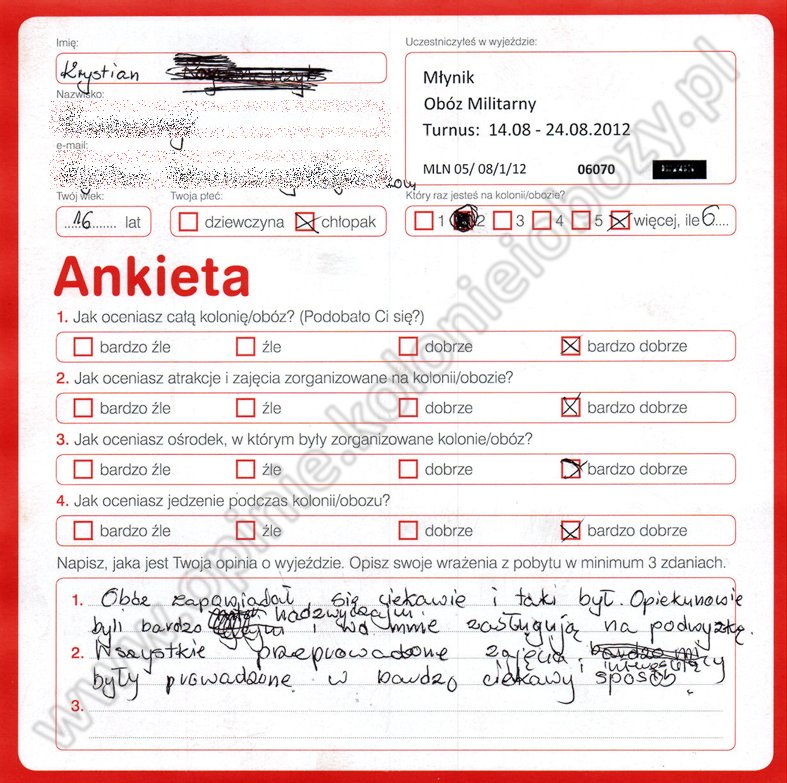 Imię:
Krystian
Uczestniczyłeś w wyjeździe:
Młynik
Obóz Militarny
Turnus: 14.08 - 24.08.2012
MLN 05/ 08/1/12 06070
Nazwisko:
e-mail:
Twój wiek:
16 lat
Twoja płeć:
dziewczyna chłopak
Który raz jesteś na kolonii/obozie?
1 2 3 4 5 więcej, ile 6
Ankieta
1. Jak oceniasz całą kolonię/obóz? (Podobało Ci się?)
bardzo źle źle dobrze bardzo dobrze
2. Jak oceniasz atrakcje i zajęcia zorganizowane na kolonii/obozie?
bardzo źle źle dobrze bardzo dobrze
3. Jak oceniasz ośrodek, w którym były zorganizowane kolonie/obóz?
bardzo źle źle dobrze bardzo dobrze
4. Jak oceniasz jedzenie podczas kolonii/obozu?
bardzo źle źle dobrze bardzo dobrze
Napisz, jaka jest Twoja opinia o wyjeździe. Opisz swoje wrażenia z pobytu w minimum 3 zdaniach.
1. Obóz zapowiadał się ciekawie i taki był. Opiekunowie
byli bardzo nadzwyczajni i wg mnie zasługują na podwyżkę.
2. Wszystkie przeprowadzone zajęcia
były prowadzone w bardzo ciekawy, interesujący sposób.
3.
www.opinie.kolonieiobozy.pl